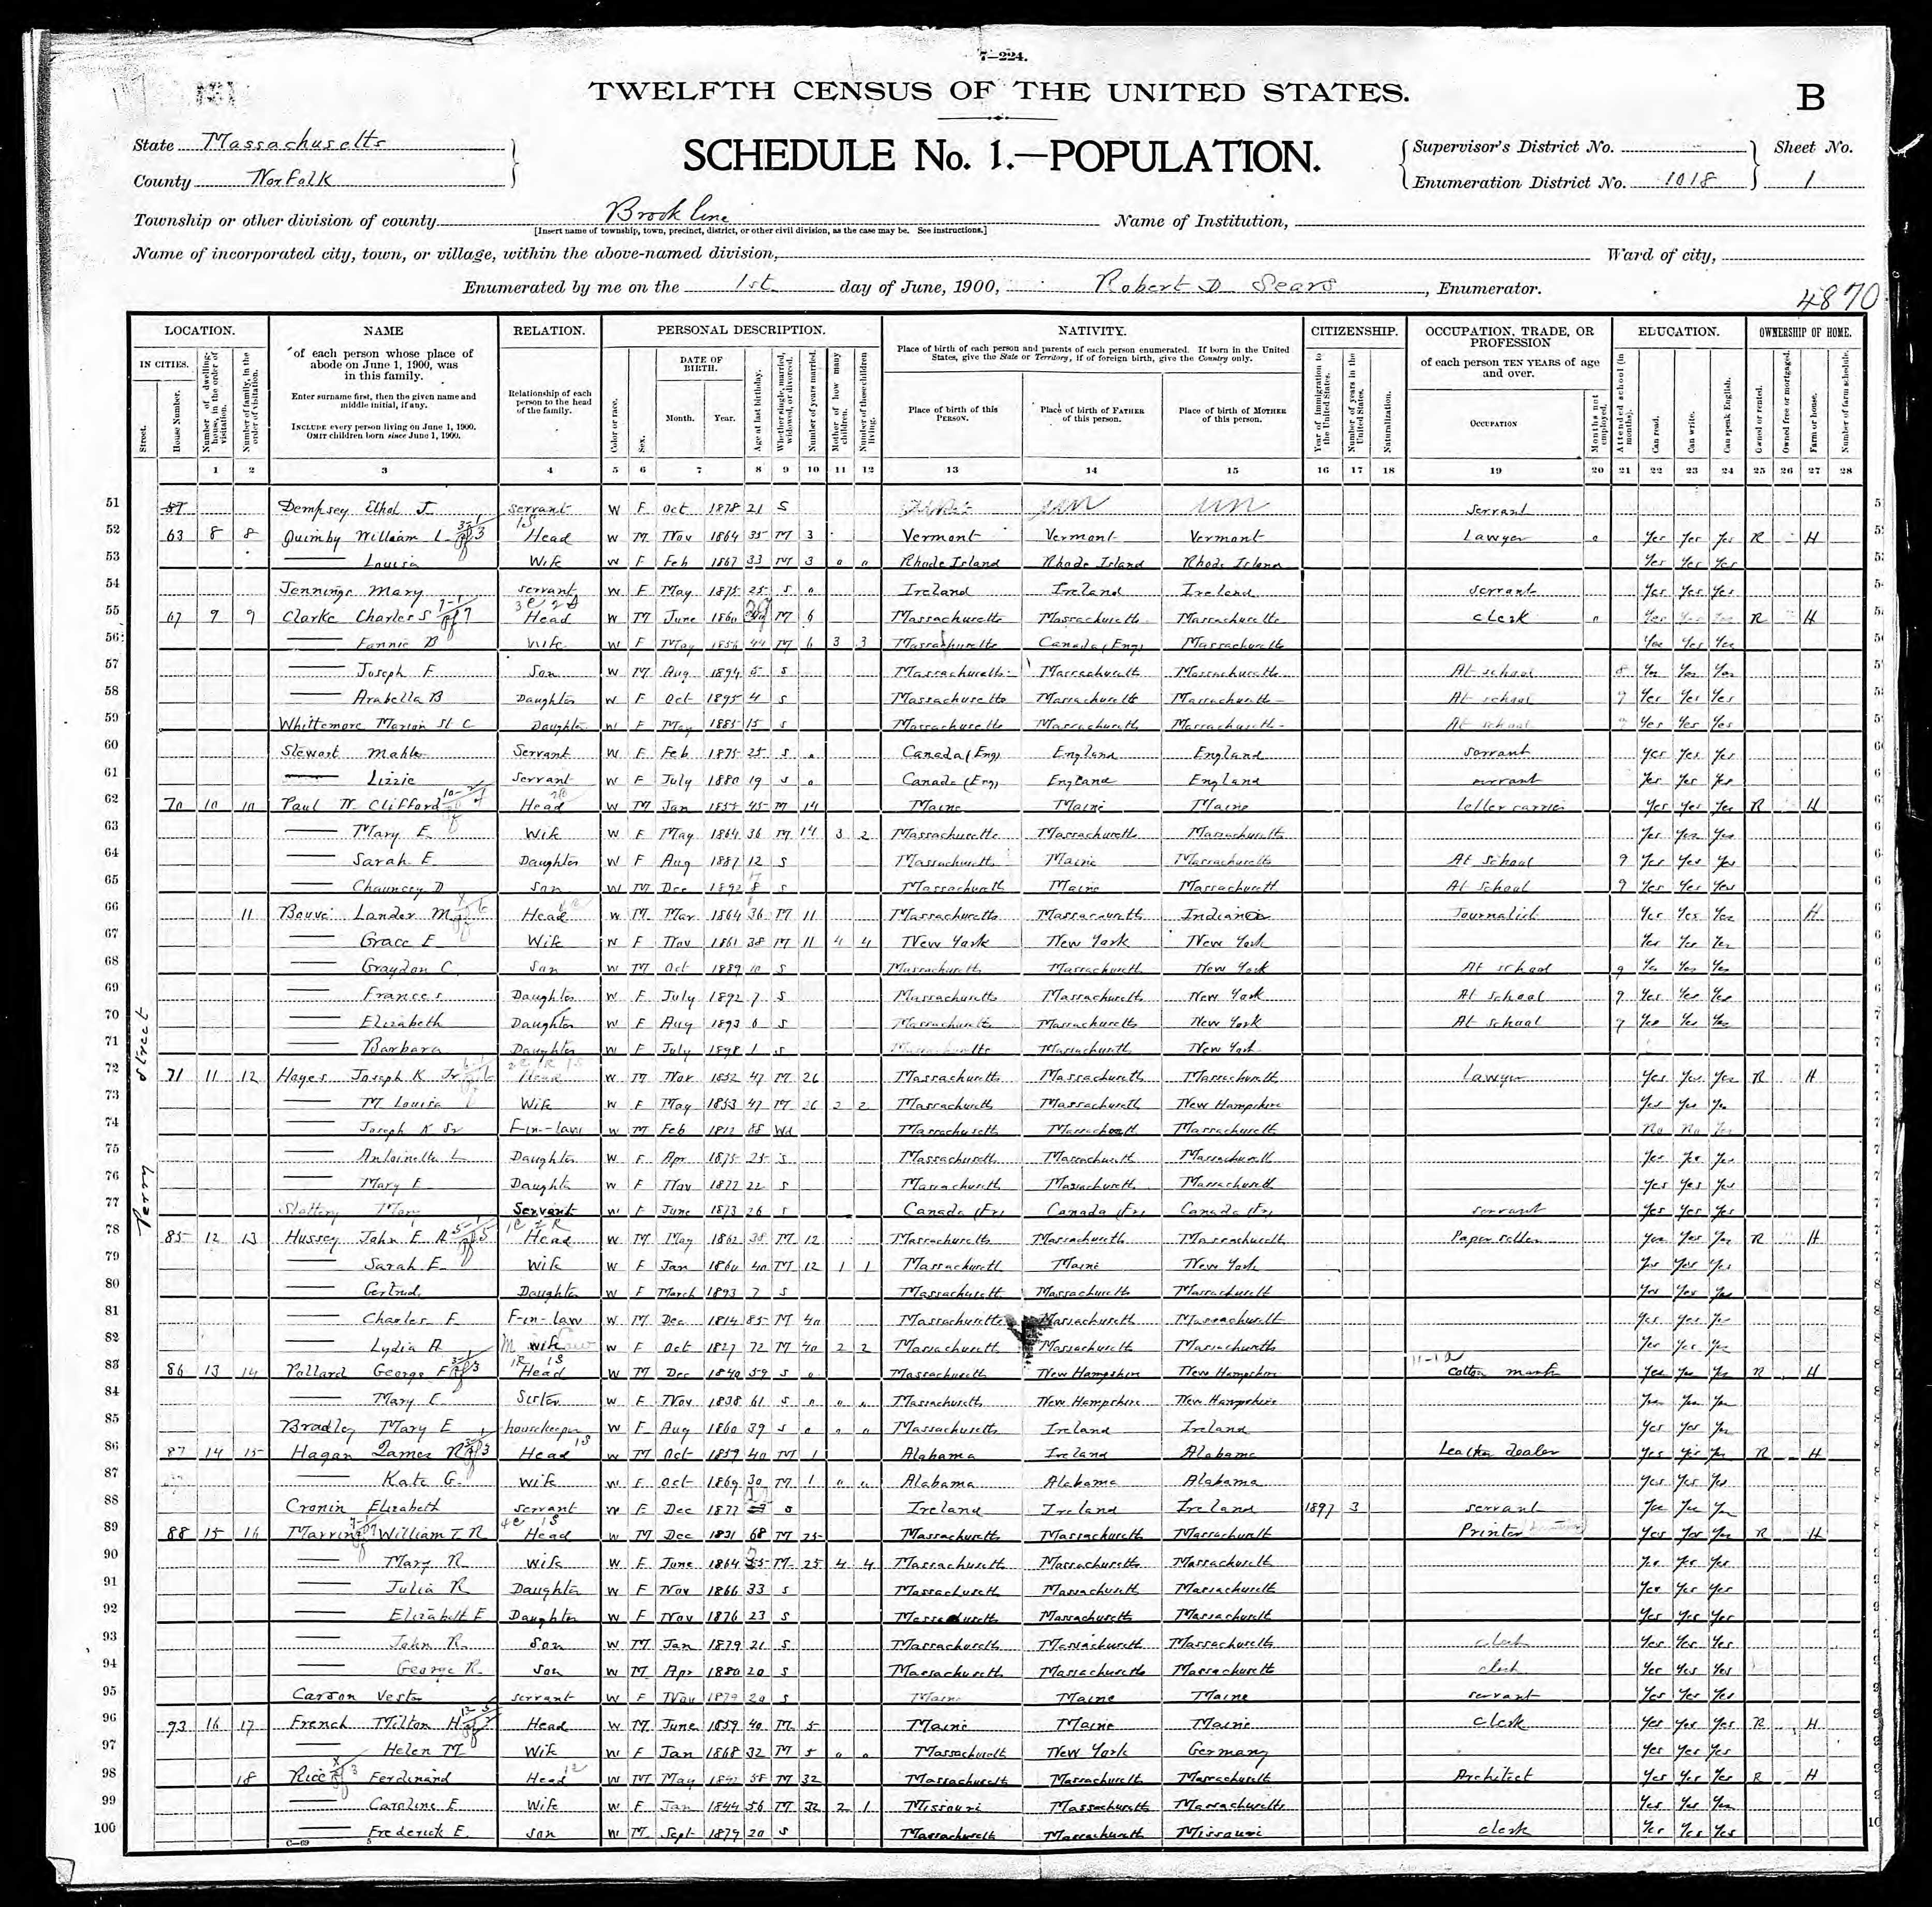 7—224.
TWELFTH CENSUS OF THE UNITED STATES.
B
State Massachusetts
SCHEDULE No. 1.—POPULATION.
Supervisor's District No.
Sheet No.
County Norfolk
Enumeration District No. 1018
1
Township or other division of county Brookline
[Insert name of township, town, precinct, district, or other civil division, as the case may be. See instructions.]
Name of Institution,
Name of incorporated city, town, or village, within the above-named division,
Ward of city,
Enumerated by me on the 1st day of June, 1900, Robert D Sears, Enumerator.
4870
LOCATION. NAME RELATION. PERSONAL DESCRIPTION. NATIVITY. CITIZENSHIP. OCCUPATION, TRADE, OR PROFESSION EDUCATION. OWNERSHIP OF HOME.
IN CITIES.
Street.
House Number.
Number of dwelling-house, in the order of visitation.
Number of family, in the order of visitation.
of each person whose place of abode on June 1, 1900, was in this family.
Enter surname first, then the given name and middle initial, if any.
INCLUDE every person living on June 1, 1900.
OMIT children born since June 1, 1900.
Relationship of each person to the head of the family.
Color or race.
Sex.
DATE OF BIRTH.
Month. Year.
Age at last birthday.
Whether single, married, widowed, or divorced.
Number of years married.
Mother of how many children.
Number of these children living.
Place of birth of each person and parents of each person enumerated. If born in the United States, give the State or Territory; if of foreign birth, give the Country only.
Place of birth of this PERSON.
Place of birth of FATHER of this person.
Place of birth of MOTHER of this person.
Year of immigration to the United States.
Number of years in the United States.
Naturalization.
of each person TEN YEARS of age and over.
OCCUPATION
Months not employed.
Attended school (in months).
Can read.
Can write.
Can speak English.
Owned or rented.
Owned free or mortgaged.
Farm or house.
Number of farm schedule.
1 2 3 4 5 6 7 8 9 10 11 12 13 14 15 16 17 18 19 20 21 22 23 24 25 26 27 28
Perry Street
51 Dempsey Ethel J servant W F Oct 1878 21 S un un servant
52 63 8 8 Quimby William L Head W M Nov 1864 35 M 3 Vermont Vermont Vermont Lawyer 0 Yes Yes Yes R H
53 Louisa Wife W F Feb 1867 33 M 3 0 0 Rhode Island Rhode Island Rhode Island Yes Yes Yes
54 Jennings Mary servant W F May 1875 25 S 0 Ireland Ireland Ireland servant Yes Yes Yes
55 67 9 9 Clarke Charles S Head W M June 1860 M 6 Massachusetts Massachusetts Massachusetts clerk 0 Yes Yes Yes R H
56 Fannie B Wife W F May 1856 44 M 6 3 3 Massachusetts Canada (Eng) Massachusetts Yes Yes Yes
57 Joseph F Son W M Aug 1894 5 S Massachusetts Massachusetts Massachusetts At school 8 Yes Yes Yes
58 Arabella B Daughter W F Oct 1895 4 S Massachusetts Massachusetts Massachusetts At school 9 Yes Yes Yes
59 Whittemore Marion St C Daughter W F May 1885 15 S Massachusetts Massachusetts Massachusetts At school 9 Yes Yes Yes
60 Stewart Servant W F Feb 1875 25 S 0 Canada (Eng) England England servant Yes Yes Yes
61 Lizzie Servant W F July 1880 19 S 0 Canada (Eng) England England servant Yes Yes Yes
62 70 10 10 Paul W. Clifford Head W M Jan 1855 45 M 14 Maine Maine Maine Letter carrier Yes Yes Yes R H
63 Mary E Wife W F May 1864 36 M 14 3 2 Massachusetts Massachusetts Massachusetts Yes Yes Yes
64 Sarah E Daughter W F Aug 1887 12 S Massachusetts Maine Massachusetts At school 9 Yes Yes Yes
65 Chauncey D Son W M Dec 1892 S Massachusetts Maine Massachusetts At school 9 Yes Yes Yes
66 11 Bouvé Lander M Head W M Mar 1864 36 M 11 Massachusetts Massachusetts Indiana Journalist Yes Yes Yes H
67 Grace E Wife W F Nov 1861 38 M 11 4 4 New York New York New York Yes Yes Yes
68 Graydon C Son W M Oct 1889 10 S Massachusetts Massachusetts New York At school 9 Yes Yes Yes
69 Frances Daughter W F July 1892 7 S Massachusetts Massachusetts New York At school 9 Yes Yes Yes
70 Elizabeth Daughter W F Aug 1893 6 S Massachusetts Massachusetts New York At school 9 Yes Yes Yes
71 Barbara Daughter W F July 1898 1 S Massachusetts Massachusetts New York
72 71 11 12 Hayes Joseph K Jr Head W M Nov 1852 47 M 26 Massachusetts Massachusetts Massachusetts Lawyer Yes Yes Yes R H
73 M Louisa Wife W F May 1853 47 M 26 2 2 Massachusetts Massachusetts New Hampshire Yes Yes Yes
74 Joseph K Sr F-in-law W M Feb 1812 88 Wd Massachusetts Massachusetts Massachusetts No No Yes
75 Antoinette L Daughter W F Apr 1875 25 S Massachusetts Massachusetts Massachusetts Yes Yes Yes
76 Mary E Daughter W F Nov 1877 22 S Massachusetts Massachusetts Massachusetts Yes Yes Yes
77 Slattery Mary Servant W F June 1873 26 S Canada (Fr) Canada (Fr) Canada (Fr) servant Yes Yes Yes
78 85 12 13 Hussey John E R Head W M May 1862 38 M 12 Massachusetts Massachusetts Massachusetts Paper seller Yes Yes Yes R H
79 Sarah E Wife W F Jan 1860 40 M 12 1 1 Massachusetts Maine New York Yes Yes Yes
80 Gertrude Daughter W F March 1893 7 S Massachusetts Massachusetts Massachusetts Yes Yes Yes
81 Charles F F-in-law W M Dec 1814 85 M 40 Massachusetts Massachusetts Massachusetts Yes Yes Yes
82 Lydia A wife W F Oct 1827 72 M 40 2 2 Massachusetts Massachusetts Massachusetts Yes Yes Yes
83 86 13 14 Pollard George F Head W M Dec 1840 59 S 0 Massachusetts New Hampshire New Hampshire Cotton Yes Yes Yes R H
84 Mary E Sister W F Nov 1838 61 S 0 0 0 Massachusetts New Hampshire New Hampshire Yes Yes Yes
85 Bradley Mary E housekeeper W F Aug 1860 39 S 0 0 0 Massachusetts Ireland Ireland Yes Yes Yes
86 87 14 15 Hagan James R Head W M Oct 1859 40 M 1 Alabama Ireland Alabama Leather dealer Yes Yes Yes R H
87 Kate G. Wife W F Oct 1869 30 M 1 0 0 Alabama Alabama Alabama Yes Yes Yes
88 Cronin Elizabeth servant W F Dec 1877 Ireland Ireland Ireland 1897 3 servant Yes Yes Yes
89 88 15 16 William T R Head W M Dec 1831 68 M 25 Massachusetts Massachusetts Massachusetts Printer Yes Yes Yes R H
90 Mary R Wife W F June 1864 M 25 4 4 Massachusetts Massachusetts Massachusetts Yes Yes Yes
91 Julia R Daughter W F Nov 1866 33 S Massachusetts Massachusetts Massachusetts Yes Yes Yes
92 Elizabeth F Daughter W F Nov 1876 23 S Massachusetts Massachusetts Massachusetts Yes Yes Yes
93 John R. Son W M Jan 1879 21 S Massachusetts Massachusetts Massachusetts clerk Yes Yes Yes
94 George R. Son W M Apr 1880 20 S Massachusetts Massachusetts Massachusetts clerk Yes Yes Yes
95 Carson Vesta servant W F Nov 1879 20 S Maine Maine Maine servant Yes Yes Yes
96 93 16 17 French Milton H Head W M June 1859 40 M 5 Maine Maine Maine Clerk Yes Yes Yes R H
97 Helen M Wife W F Jan 1868 32 M 5 0 0 Massachusetts New York Germany Yes Yes Yes
98 18 Rice Ferdinand Head W M May 1842 58 M 32 Massachusetts Massachusetts Massachusetts Architect Yes Yes Yes R H
99 Caroline E Wife W F Jan 1844 56 M 32 2 1 Missouri Massachusetts Massachusetts Yes Yes Yes
100 Frederick E. Son W M Sept 1879 20 S Massachusetts Massachusetts Missouri clerk Yes Yes Yes